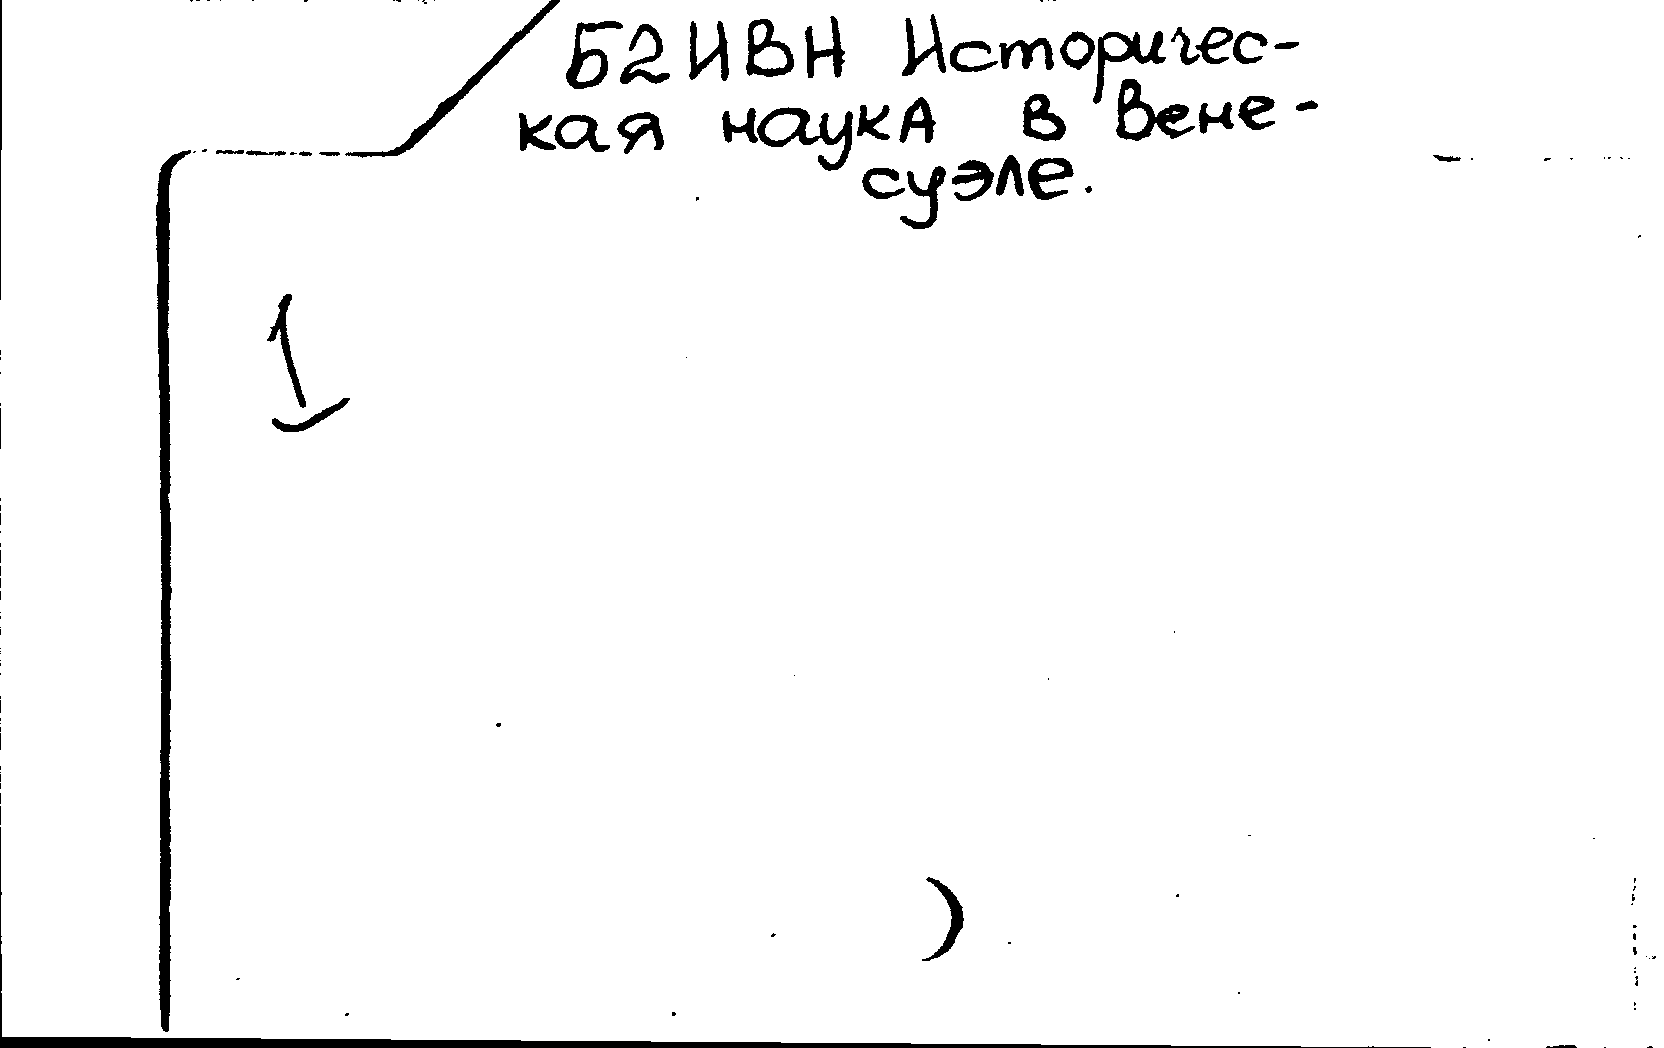 Б2ИВН Историчес-
кая наукА в Вене-
суэле.
1